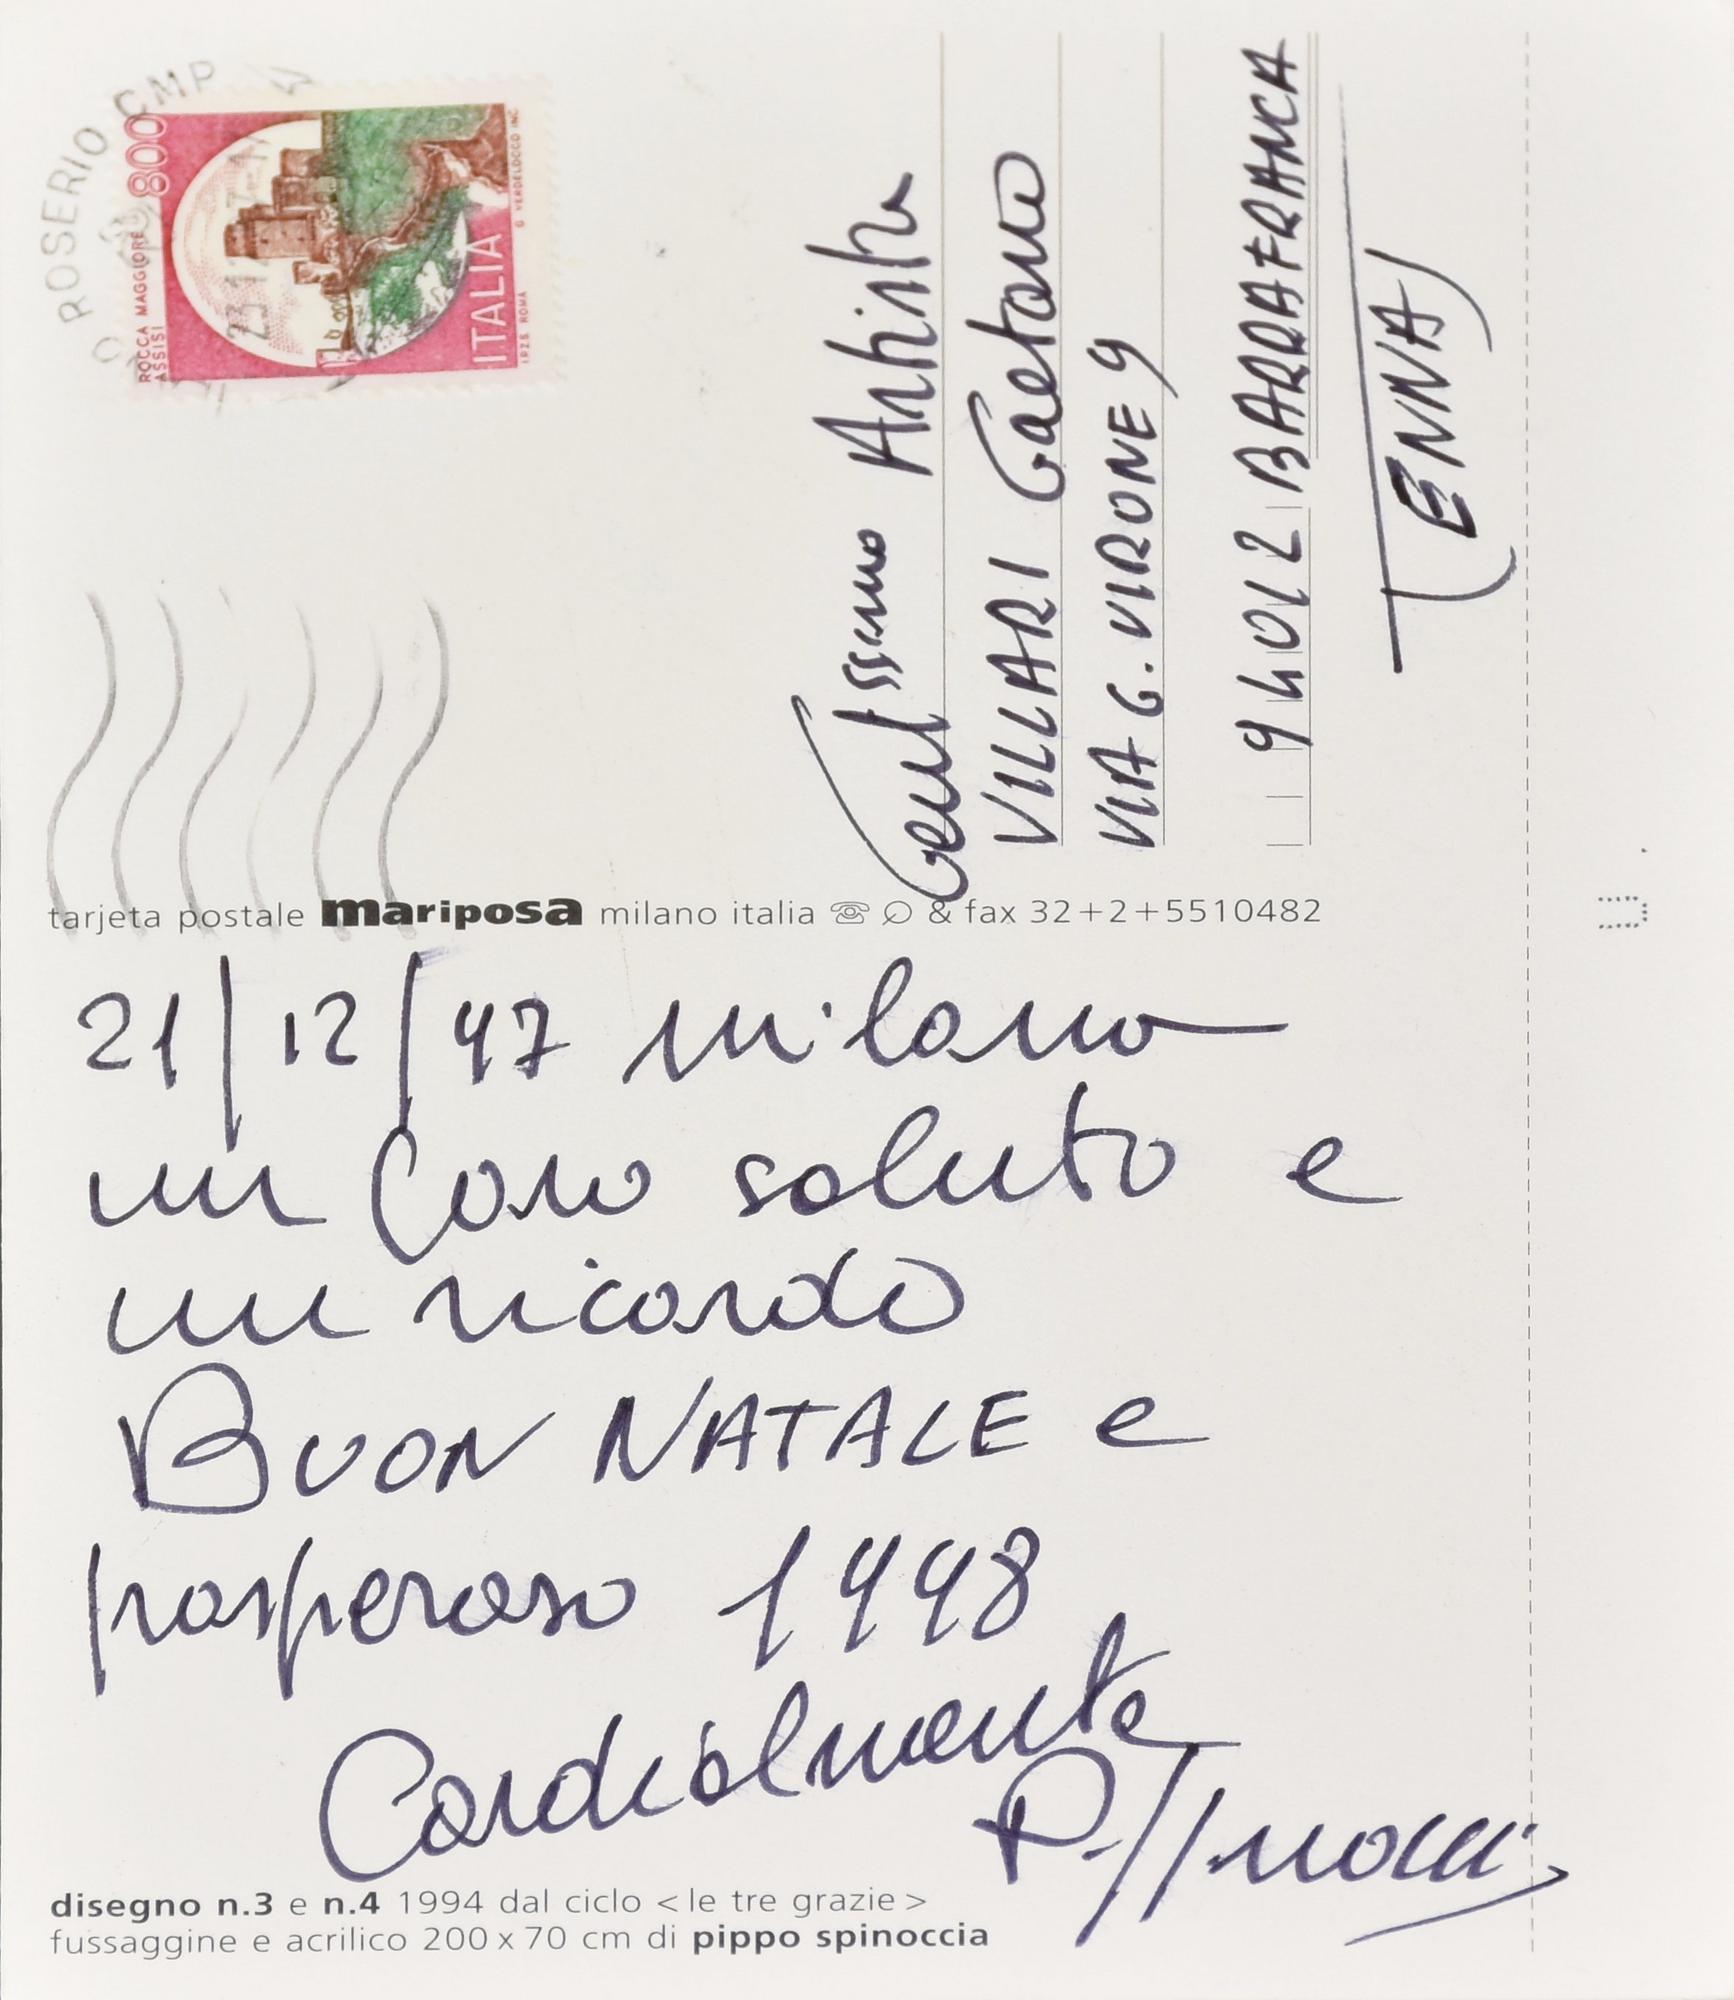 ROSERIO CMP
23.12.97-1
800
ROCCA MAGGIORE
ASSISI
ITALIA
G VERDELOCCO INC.
I.P.Z.S. ROMA
Gentilissimo Artista
VILLARI Gaetano
VIA G. VIRONE 9
94012 BARRAFRANCA
(ENNA)
tarjeta postale mariposa milano italia ☏ & fax 32+2+5510482
21/12/97 milano
un Caro saluto e
un ricordo
BUON NATALE e
prosperoso 1998
Cordialmente
P. Spinoccia
disegno n.3 e n.4 1994 dal ciclo <le tre grazie>
fussaggine e acrilico 200x70 cm di pippo spinoccia